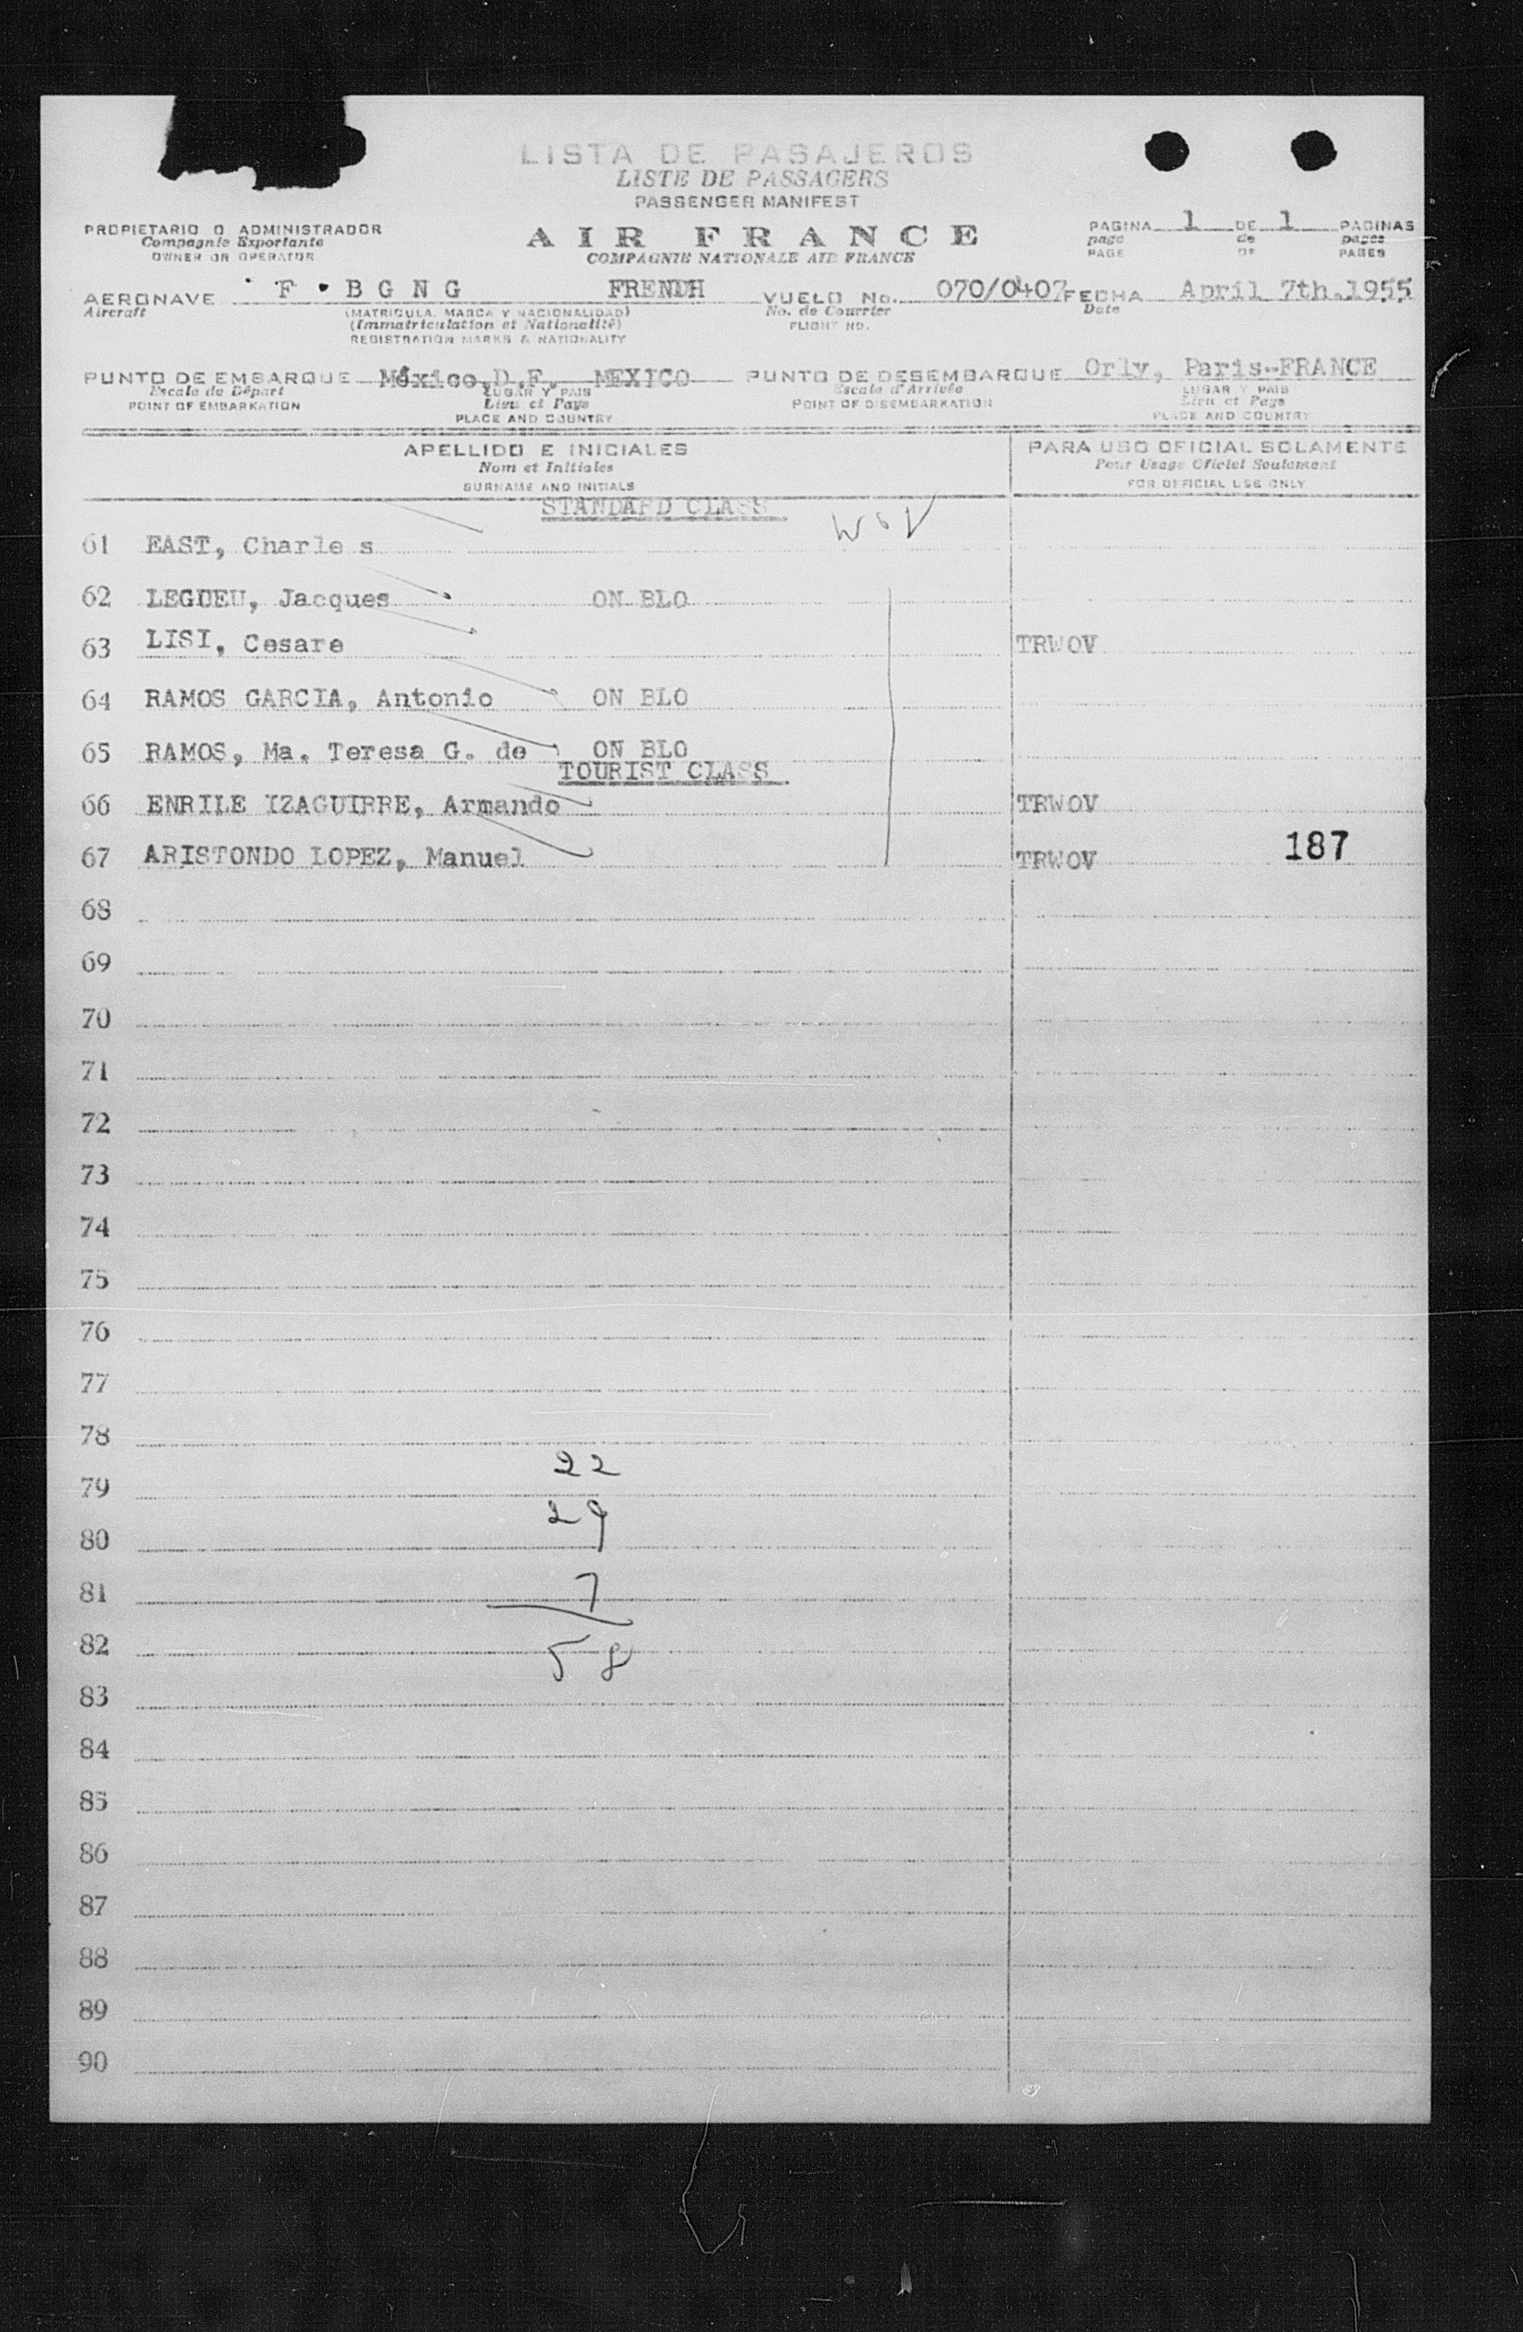 LISTA DE PASAJEROS
LISTE DE PASSAGERS
PASSENGER MANIFEST
PROPIETARIO O ADMINISTRADOR
Compagnie Exportante
OWNER OR OPERATOR
AIR FRANCE
COMPAGNIE NATIONALE AIR FRANCE
PAGINA 1 DE 1 PAGINAS
page de pages
PAGE OF PAGES
AERONAVE F . B G N G FRENDH VUELO No. 070/0407 FECHA April 7th.1955
Aircraft (MATRICULA, MARCA Y NACIONALIDAD) No. de Courrier Date
(Immatriculation et Nationalité) FLIGHT NO.
REGISTRATION MARKS & NATIONALITY
PUNTO DE EMBARQUE México,D.F. MEXICO PUNTO DE DESEMBARQUE Orly, Paris-FRANCE
Escale de Départ LUGAR Y PAIS Escale d'Arrivée LUGAR Y PAIS
POINT OF EMBARKATION Lieu et Pays POINT OF DISEMBARKATION Lieu et Pays
PLACE AND COUNTRY PLACE AND COUNTRY
APELLIDO E INICIALES PARA USO OFICIAL SOLAMENTE
Nom et Initiales Pour Usage Oficiel Soulament
SURNAME AND INITIALS FOR OFFICIAL USE ONLY
STANDARD CLASS
61 EAST, Charle s
62 LEGUEU, Jacques ON BLO
63 LISI, Cesare TRWOV
64 RAMOS GARCIA, Antonio ON BLO
65 RAMOS, Ma. Teresa G. de ON BLO
TOURIST CLASS
66 ENRILE IZAGUIRRE, Armando TRWOV
67 ARISTONDO LOPEZ, Manuel TRWOV 187
68
69
70
71
72
73
74
75
76
77
78
22
79
29
80
81 7
82 58
83
84
85
86
87
88
89
90